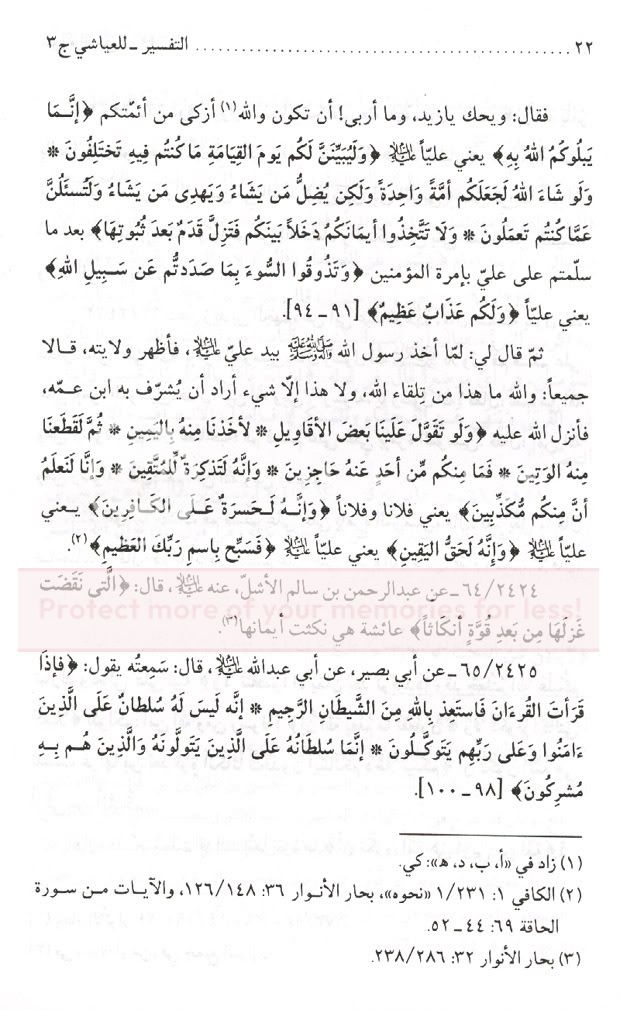 ٢٢ ................................................ التفسير ـ للعياشي ج٣
فقال: ويحك يازيد، وما أربى! أن تكون والله(١) أزكى من أئمّتكم ﴿إنَّمَا
يَبلُوكُمُ اللهُ بِهِ﴾ يعني عليّاً عليه السلام ﴿وَلَيُبَيِّنَنَّ لَكُم يَومَ القِيَامَةِ مَا كُنتُم فِيهِ تَختَلِفُونَ *
وَلَو شَاءَ اللهُ لَجَعَلَكُم أمَّةً وَاحِدَةً وَلَكِن يُضِلُّ مَن يَشَاءُ وَيَهدِى مَن يَشَاءُ وَلَتُسئَلُنَّ
عَمَّا كُنتُم تَعمَلُونَ * وَلَا تَتَّخِذُوا أيمَانَكُم دَخَلاً بَينَكُم فَتَزِلَّ قَدَمٌ بَعدَ ثُبُوتِهَا﴾ بعد ما
سلّمتم على عليّ بإمرة المؤمنين ﴿وَتَذُوقُوا السُّوءَ بِمَا صَدَدتُّم عَن سَبِيلِ اللهِ﴾
يعني عليّاً ﴿وَلَكُم عَذَابٌ عَظِيمٌ﴾ [٩١ ـ ٩٤].
ثمّ قال لي: لمّا أخذ رسول الله صلى الله عليه وآله بيد عليّ عليه السلام، فأظهر ولايته، قالا
جميعاً: والله ما هذا من تِلقاء الله، ولا هذا إلّا شيء أراد أن يُشرّف به ابن عمّه،
فأنزل الله عليه ﴿وَلَو تَقَوَّلَ عَلَينَا بَعضَ الأقَاوِيلِ * لأخَذنَا مِنهُ بِاليَمِينِ * ثُمَّ لَقَطَعنَا
مِنهُ الوَتِينَ * فَمَا مِنكُم مِّن أحَدٍ عَنهُ حَاجِزِينَ * وَإنَّهُ لَتَذكِرَةٌ لِّلمُتَّقِينَ * وَإنَّا لَنَعلَمُ
أنَّ مِنكُم مُّكَذِّبِينَ﴾ يعني فلانا وفلاناً ﴿وَإنَّهُ لَحَسرَةٌ عَلَى الكَافِرِينَ﴾ يعني
عليّاً عليه السلام ﴿وَإنَّهُ لَحَقُّ اليَقِينِ﴾ يعني عليّاً عليه السلام ﴿فَسَبِّح بِاسمِ رَبِّكَ العَظِيمِ﴾(٢).
٦٤/٢٤٢٤ـ عن عبدالرحمن بن سالم الأشلّ، عنه عليه السلام، قال: ﴿الَّتى نَقَضَت
Protect more of your memories for less!
غَزلَهَا مِن بَعدِ قُوَّةٍ أنكَاثاً﴾ عائشة هي نكثت أيمانها(٣).
٦٥/٢٤٢٥ـ عن أبي بصير، عن أبي عبدالله عليه السلام، قال: سَمِعتُه يقول: ﴿فَإذَا
قَرَأتَ القُرءَانَ فَاستَعِذ بِاللهِ مِنَ الشَّيطَانِ الرَّجِيمِ * إنَّه لَيسَ لَهُ سُلطَانٌ عَلَى الَّذِينَ
ءَامَنُوا وَعَلَى رَبِّهِم يَتَوَكَّلُونَ * إنَّمَا سُلطَانُهُ عَلَى الَّذِينَ يَتَوَلَّونَهُ وَالَّذِينَ هُم بِهِ
مُشرِكُونَ﴾ [٩٨ ـ ١٠٠].
(١) زاد في «أ، ب، د، ه»: كي.
(٢) الكافي ١: ١/٢٣١ «نحوه»، بحار الأنوار ٣٦: ١٢٦/١٤٨، والآيات من سورة
الحاقة ٦٩: ٤٤ ـ ٥٢.
(٣) بحار الأنوار ٣٢: ٢٣٨/٢٨٦.